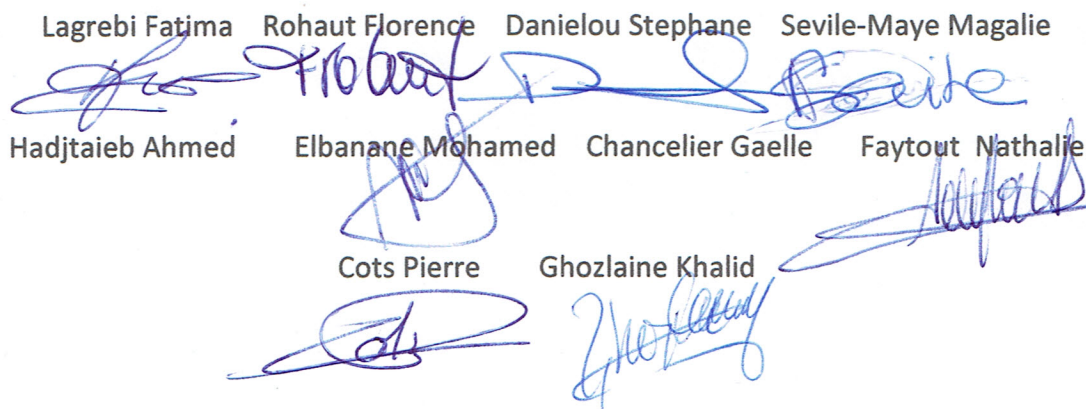 Lagrebi Fatima Rohaut Florence Danielou Stephane Sevile-Maye Magalie
Hadjtaieb Ahmed Elbanane Mohamed Chancelier Gaelle Faytout Nathalie
Cots Pierre Ghozlaine Khalid